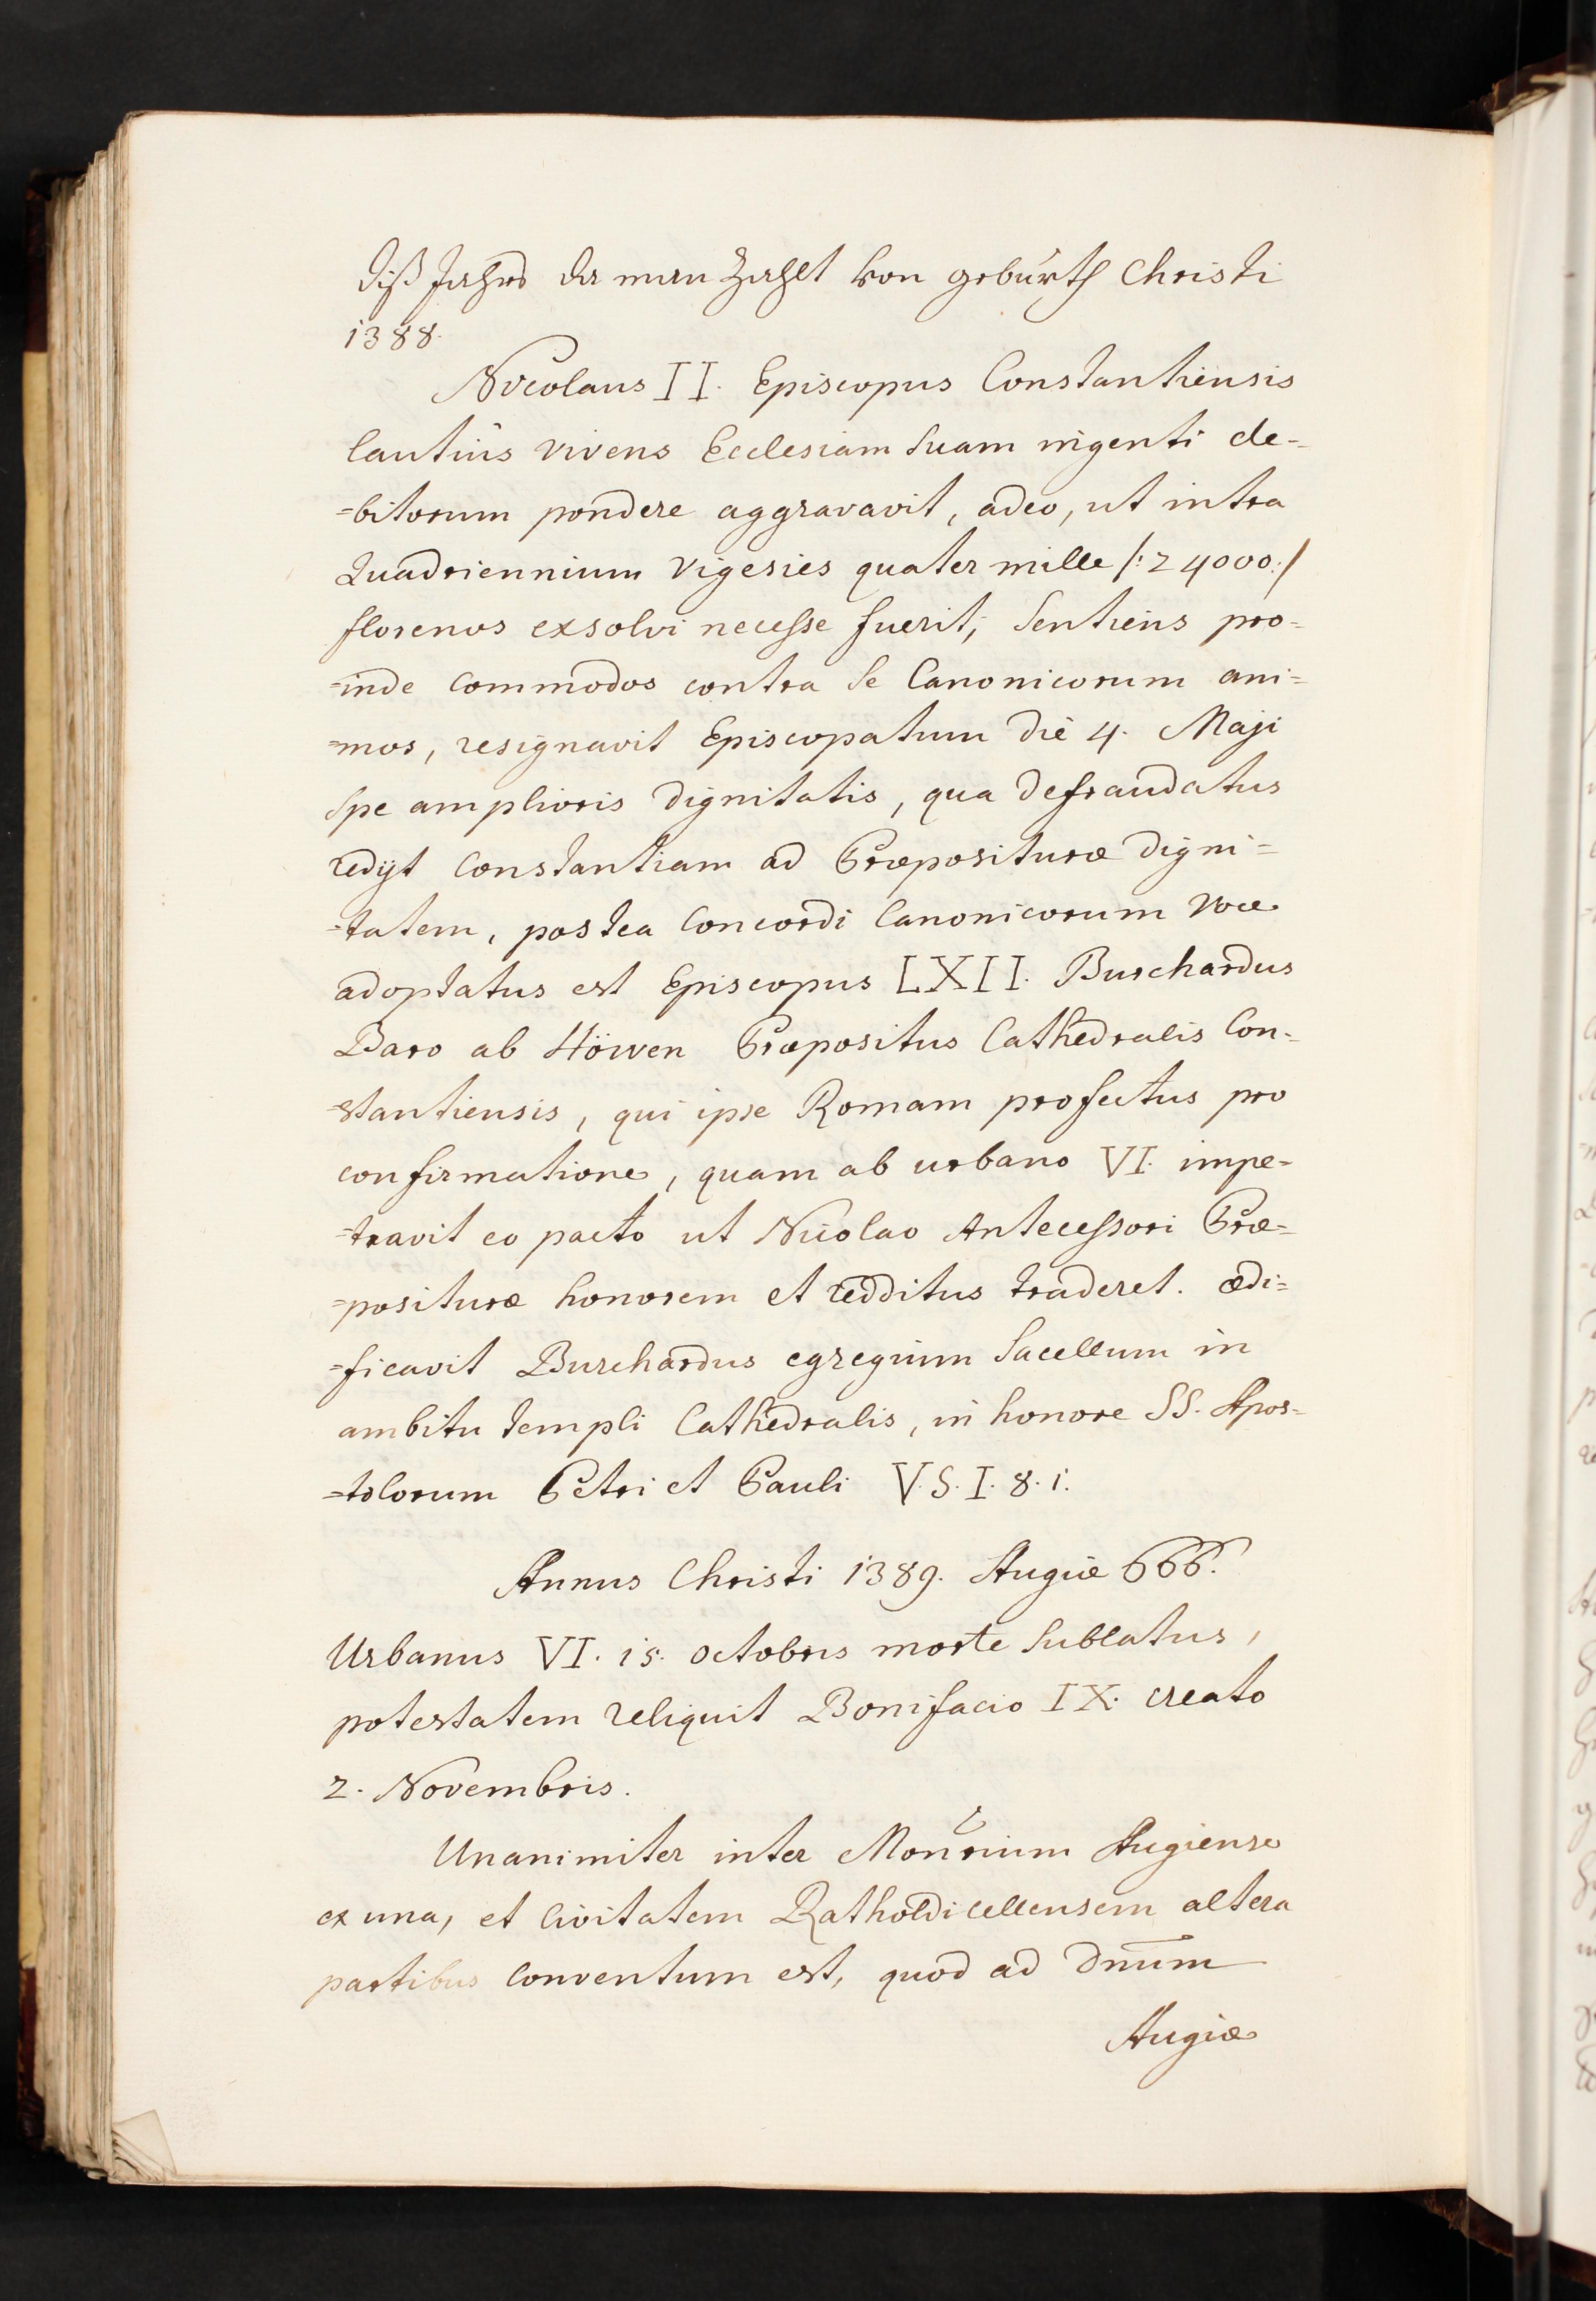 diß Jahrs da man zahlt von geburth Christi
1388.
Nicolaus II. Episcopus Constantiensis
lautius vivens Ecclesiam suam ingenti de-
=bitorum pondere aggravavit, adeo, ut intra
Quadriennium vigesies quater mille /: 24000 :/
florenos exsolvi necesse fuerit; sentiens pro=
=inde commodos contra se Canonicorum ani=
=mos, resignavit Episcopatum die 4. Maji
spe amplioris dignitatis, qua defraudatus
redijt Constantiam ad Præposituræ digni=
=tatem, postea concordi Canonicorum voce
adoptatus est Episcopus LXII. Burchardus
Baro ab Höwen Præpositus Cathedralis Con-
=stantiensis, qui ipse Romam profectus pro
confirmatione, quam ab urbano VI. impe-
=travit eo pacto ut Nicolao Antecessori Præ-
=posituræ honorem et redditus traderet. ædi=
=ficavit Burchardus egregium Sacellum in
ambitu templi Cathedralis, in honore SS. Apos=
=tolorum Petri et Pauli V. S. I. 8. 1.
Annus Christi 1389. Augiæ 666.
Urbanus VI. 15. octobris morte sublatus,
potestatem reliquit Bonifacio IX. creato
2. Novembris.
Unanimiter inter Monrium Augiense
ex una, et Civitatem Ratholdicellensem altera
partibus conventum est, quod ad Dnum
Augiæ